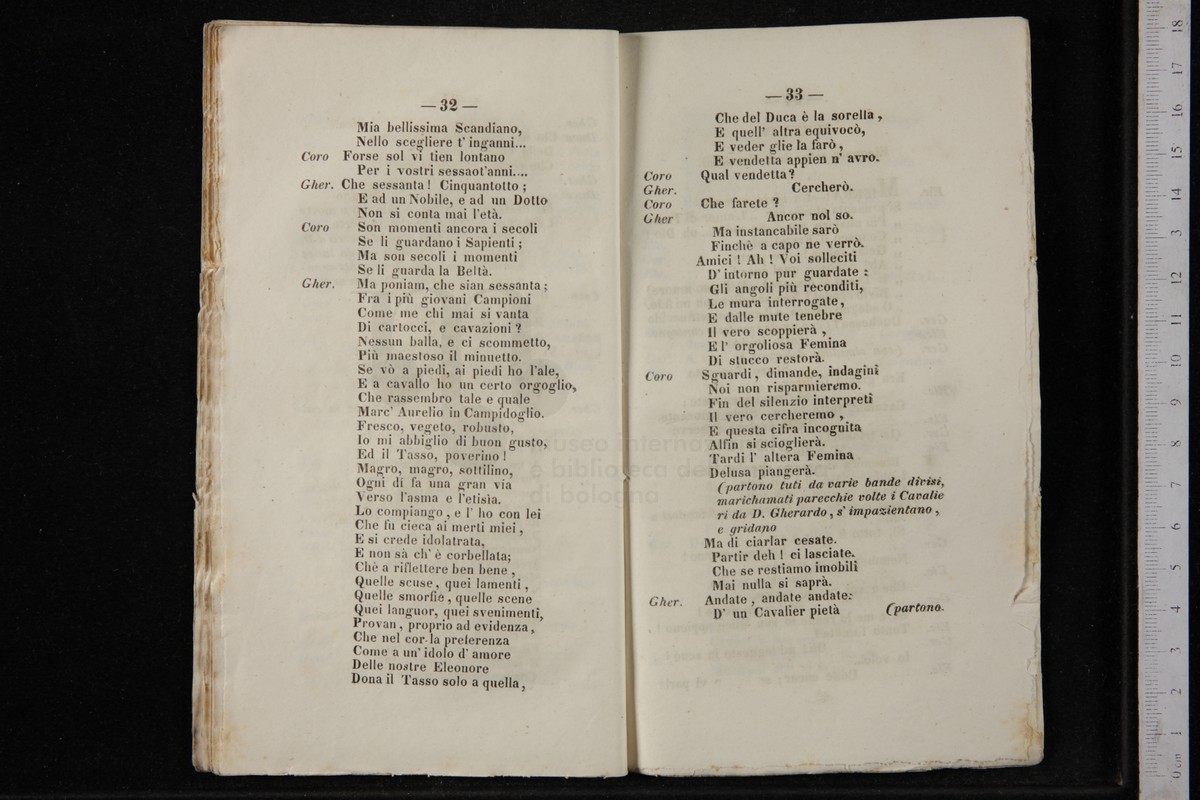 — 32 —
Mia bellissima Scandiano,
Nello scegliere t' inganni...
Coro Forse sol vi tien lontano
Per i vostri sessaot'anni....
Gher. Che sessanta ! Cinquantotto ;
E ad un Nobile, e ad un Dotto
Non si conta mai l'età.
Coro Son momenti ancora i secoli
Se li guardano i Sapienti ;
Ma son secoli i momenti
Se li guarda la Beltà.
Gher. Ma poniam, che sian sessanta ;
Fra i più giovani Campioni
Come me chi mai si vanta
Di cartocci, e cavazioni ?
Nessun balla, e ci scommetto,
Più maestoso il minuetto.
Se vò a piedi, ai piedi ho l'ale,
E a cavallo ho un certo orgoglio,
Che rassembro tale e quale
Marc' Aurelio in Campidoglio.
Fresco, vegeto, robusto,
Io mi abbiglio di buon gusto,
Ed il Tasso, poverino !
Magro, magro, sottilino,
Ogni dì fa una gran via
Verso l'asma e l'etisìa.
Lo compiango , e l' ho con lei
Che fu cieca ai merti miei ,
E si crede idolatrata,
E non sà ch' è corbellata;
Chè a riflettere ben bene ,
Quelle scuse, quei lamenti ,
Quelle smorfie , quelle scene
Quei languor, quei svenimenti,
Provan , proprio ad evidenza ,
Che nel cor la preferenza
Come a un' idolo d' amore
Delle nostre Eleonore
Dona il Tasso solo a quella ,
— 33 —
Che del Duca è la sorella ,
E quell' altra equivocò,
E veder glie la farò ,
E vendetta appien n' avro.
Coro Qual vendetta ?
Gher. Cercherò.
Coro Che farete ?
Gher Ancor nol so.
Ma instancabile sarò
Finchè a capo ne verrò.
Amici ! Ah ! Voi solleciti
D' intorno pur guardate :
Gli angoli più reconditi,
Le mura interrogate ,
E dalle mute tenebre
Il vero scoppierà ,
E l' orgoliosa Femina
Di stucco restorà.
Coro Sguardi , dimande, indagini
Noi non risparmieremo.
Fin del silenzio interpreti
Il vero cercheremo ,
E questa cifra incognita
Alfin si scioglierà.
Tardi l' altera Femina
Delusa piangerà.
(partono tuti da varie bande divisi,
marichamati parecchie volte i Cavalie
ri da D. Gherardo , s' impazientano ,
e gridano
Ma di ciarlar cesate.
Partir deh ! ci lasciate.
Che se restiamo imobili
Mai nulla si saprà.
Gher. Andate , andate andate:
D' un Cavalier pietà (partono.
museo interna
e biblioteca de
di bologna
0 cm 1 2 3 4 5 6 7 8 9 10 11 12 13 14 15 16 17 18